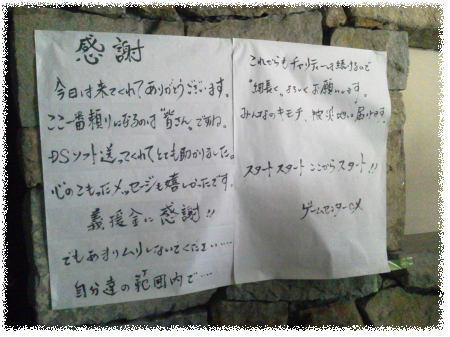 感謝
今日は来てくれてありがとうございます。
ここ一番頼りになるのは"皆さん"ですね。
DSソフト送ってくれてとても助かりました。
心のこもったメッセージも嬉しかったです。
義援金に感謝!!
でもあまりムリしないでくださいね……
自分達の範囲内で……
これからもチャリティーは続けるので
"細長く"よろしくお願いします。
みんなのキモチ、被災地に届けます。
スタートスタートここからスタート!!
ゲームセンターCX